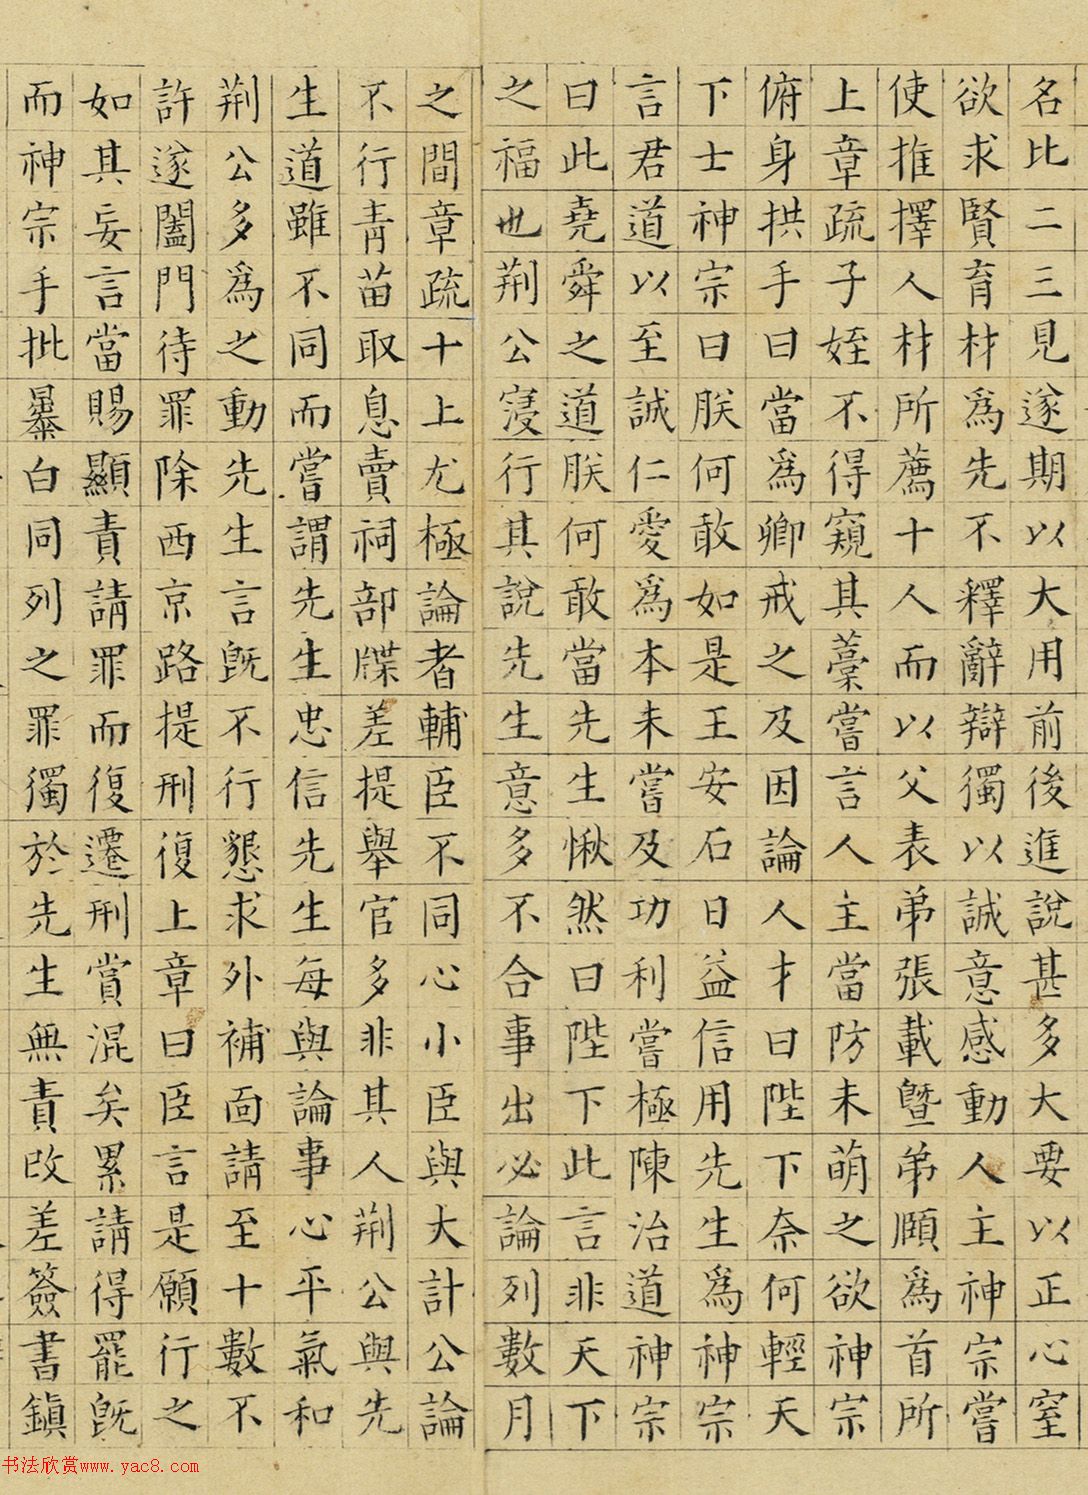 名比二三見遂期以大用前後進說甚多大要以正心窒
欲求賢育材爲先不釋辭辯獨以誠意感動人主神宗嘗
使推擇人材所薦十人而以父表弟張載曁弟頤爲首所
上章疏子姪不得窺其藁嘗言人主當防未萌之欲神宗
俯身拱手曰當爲卿戒之及因論人才曰陛下奈何輕天
下士神宗曰朕何敢如是王安石日益信用先生爲神宗
言君道以至誠仁愛爲本未嘗及功利嘗極陳治道神宗
曰此堯舜之道朕何敢當先生愀然曰陛下此言非天下
之福也荆公寖行其說先生意多不合事出必論列數月
之間章疏十上尤極論者輔臣不同心小臣與大計公論
不行青苗取息賣祠部牒差提舉官多非其人荆公與先
生道雖不同而嘗謂先生忠信先生每與論事心平氣和
荆公多爲之動先生言旣不行懇求外補面請至十數不
許遂闔門待罪除西京路提刑復上章曰臣言是願行之
如其妄言當賜顯責請罪而復遷刑賞混矣累請得罷旣
而神宗手批暴白同列之罪獨於先生無責改差簽書鎮
书法欣赏www.yac8.com